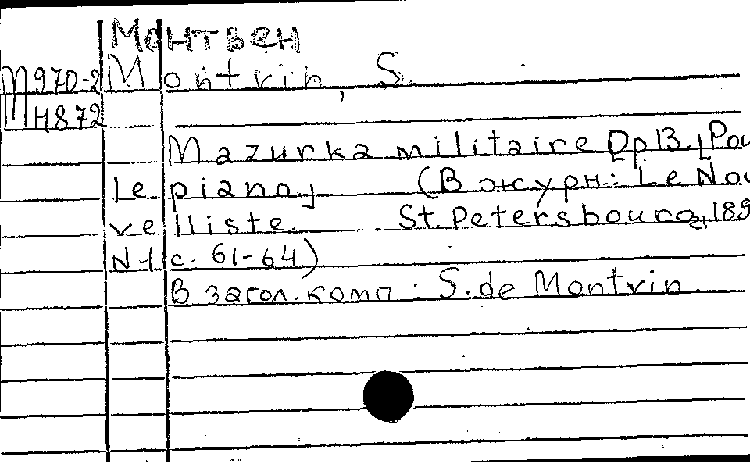 Монтвен
М970-2 Montvin, S.
М4872
Mazurka militaire Op 13. [Pou
le piano] (В журн: Le Nou
velliste St. Petersbourg, 189
N 1 с. 61-64)
В загол. комп: S. de Montvin